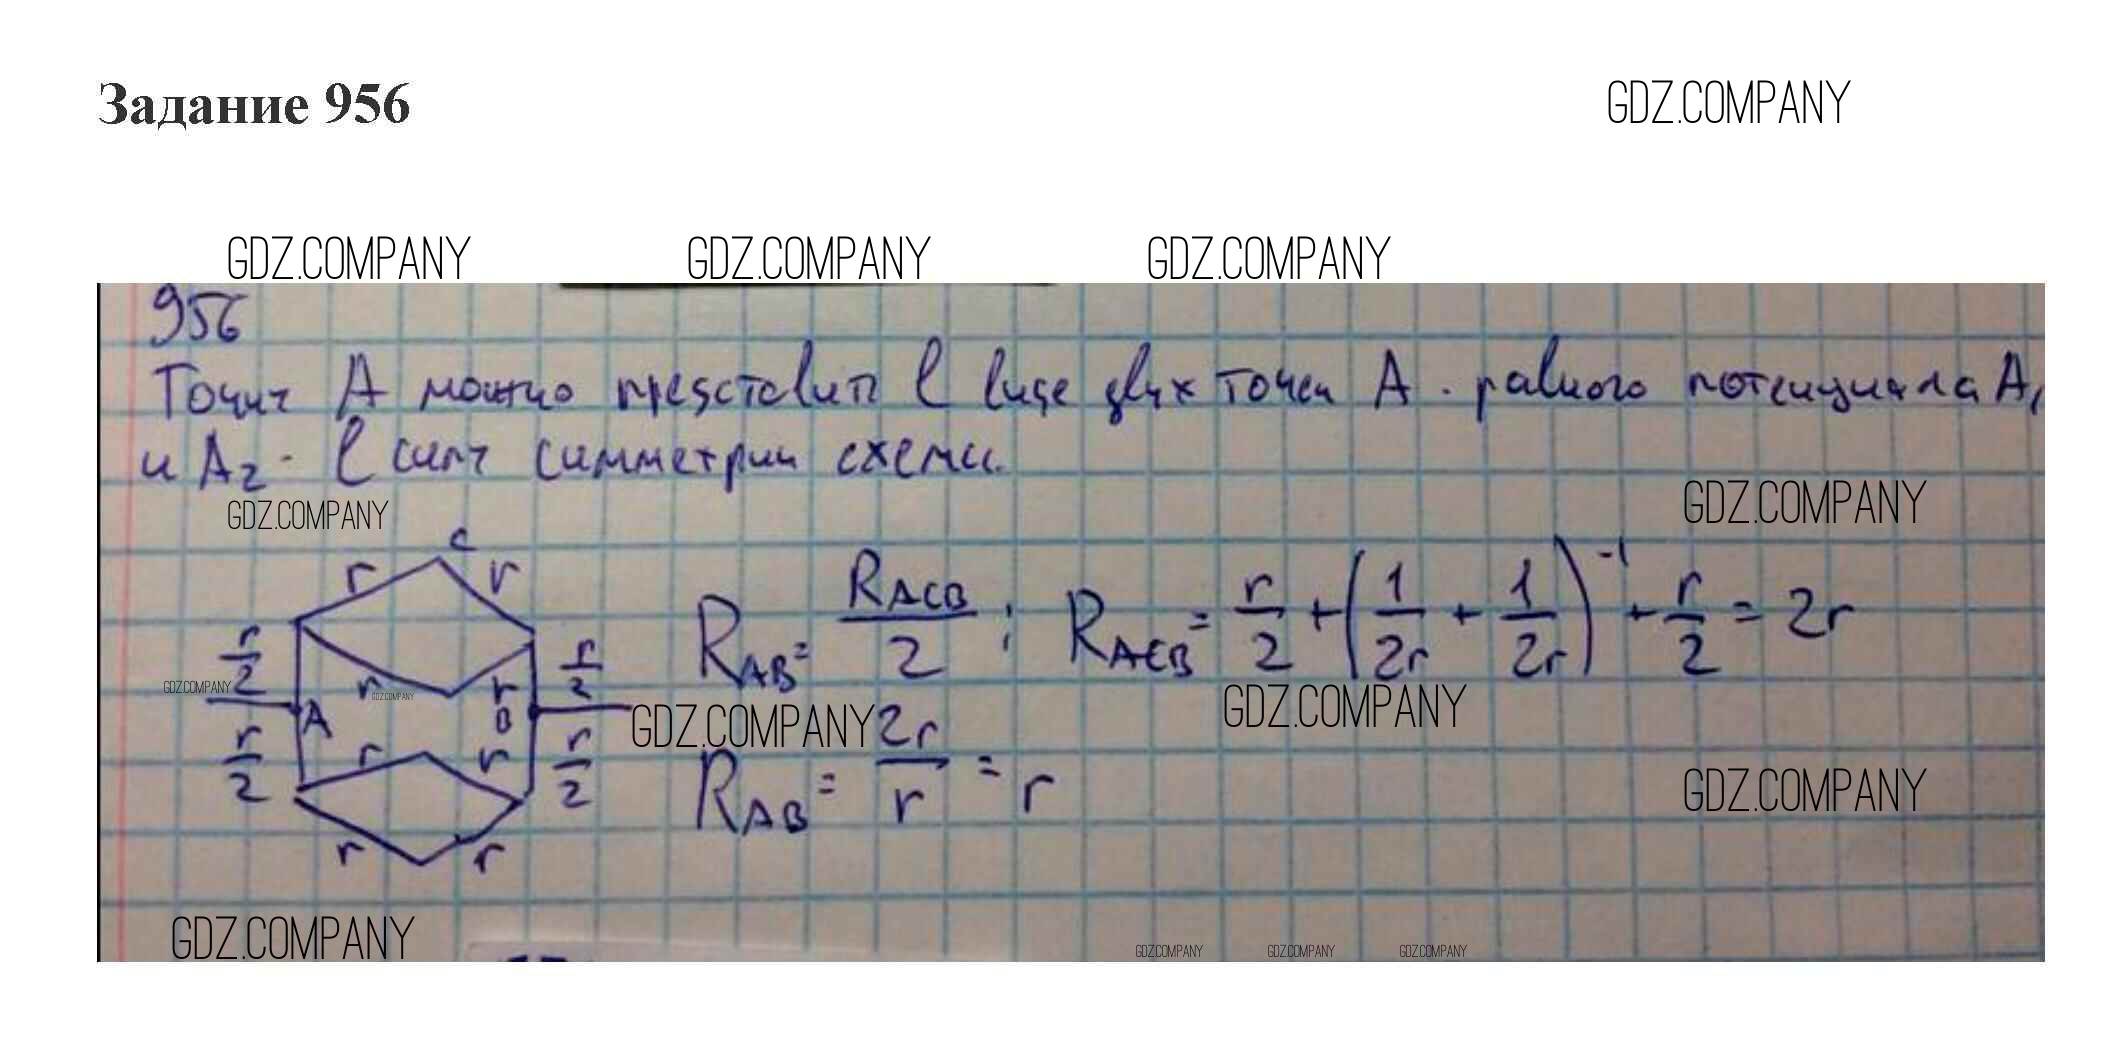 Задание 956
GDZ.COMPANY
GDZ.COMPANY GDZ.COMPANY GDZ.COMPANY
956
Точку A можно представить в виде двух точек A . равного потенциала A₁
и A₂ - в силу симметрии схемы.
GDZ.COMPANY
GDZ.COMPANY
c
r r
R_AB = R_ACB / 2 ; R_ACB = r/2 + (1/2r + 1/2r)⁻¹ + r/2 = 2r
r/2 r/2
GDZ.COMPANY r GDZ.COMPANY r
GDZ.COMPANY
A B GDZ.COMPANY
r/2 r r r/2
R_AB = 2r/r = r
GDZ.COMPANY
r r
GDZ.COMPANY
GDZ.COMPANY GDZ.COMPANY GDZ.COMPANY